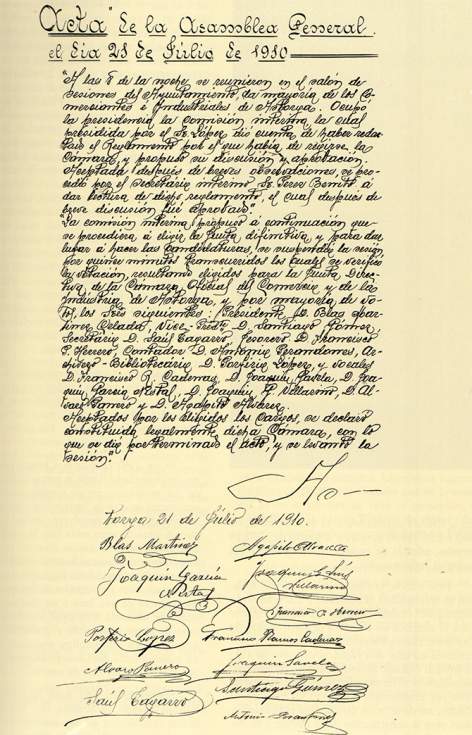 "Acta" de la Asamblea General.
el dia 21 de Julio de 1910
"A las 8 de la noche, se reunieron en el salón de
sesiones del Ayuntamiento, la mayoría de los Co-
merciantes é Industriales de Astorga. Ocupó
la presidencia la comisión interina, la cual
presidida por el Sr. López dió cuenta de haber redac-
tado el Reglamento por el que habia de regirse la
Cámara, y propuso su discusión y aprobación.
Aceptada, después de breves observaciones, se pro-
cedió por el Secretario interino Sr. Perez Benito á
dar lectura de dicho reglamento, el cual después de
breve discusión fué aprobado."
"La comisión interina propuso á continuación que
se procediera á elegir la Junta definitiva y para dar
lugar á hacer las Candidaturas, se suspendió la sesión
por quince minutos transcurridos los cuales se verificó
la votación, resultando elegidos para la Junta Direc-
tiva de la Cámara Oficial del Comercio y de la
Industria de Astorga, y por mayoría de vo-
tos, los Sres siguientes: Presidente D. Blas Mar-
tinez Celada, Vice-Predte D. Santiago Gómez,
Secretario D. Saúl Tagarro, Tesorero D. Francisco
P. Herrero, Contador D. Antonio Perandones, Ar-
chivero-Bibliotecario D. Porfirio López, y vocales
D. Francisco R. Cadenas, D. Joaquín Gavela, D. Joa-
quin García Nistal, D. Joaquin L. Villarino, D. Al-
varo Panero y D. Agapito Alvarez.
Aceptados por los elegidos los Cargos, se declaró
constituida legalmente dicha Cámara, con lo
que se dió por terminado el acto, y se levantó la
sesión."
21 de Julio de 1910.
Blas Martinez Agapito Alvarez
Joaquin García Nistal Joaquin L. Villarino
Francisco P. Herrero
Porfirio Lopez Francisco Ramos Cadenas
Alvaro Panero Joaquin Gavela
Saúl Tagarro Santiago Gómez
Antonio Perandones